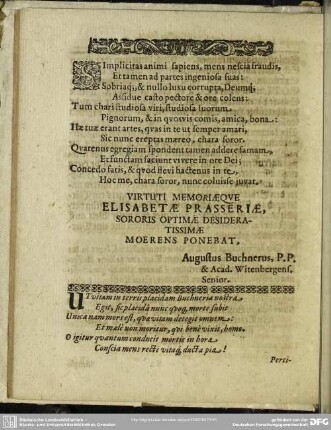 SImplicitas animi sapiens, mens nescia fraudis,
Et tamen ad partes ingeniosa suas:
Sobriaq;, & nullo luxu corrupta, Deumq;
Assidue casto pectore & ore colens:
Tum chari studiosa viri, studiosa suorum
Pignorum, & in quosvis comis, amica, bona:
Hæ tuæ erant artes, quas in te ut semper amavi,
Sic nunc ereptas mæreo, chara soror.
Quatenus egregiam spondent tamen addere famam,
Et functam faciunt vivere in ore Dei;
Concedo fatis, & quod flevi hactenus in te,
Hoc me, chara soror, nunc coluisse juvat.
VIRTUTI MEMORIÆQVE
ELISABETÆ PRASSERIÆ,
SORORIS OPTIMÆ DESIDERA-
TISSIMÆ
MOERENS PONEBAT,
Augustus Buchnerus, P.P.
& Acad. Witenbergens.
Senior.
UT vitam in terris placidam Buchneria nostra
Egit, sic placidâ nunc quoq, morte subit
Unica nam mors est, quæ vitam detegit omnem:
Et malè non moritur, qvi benè vixit, homo.
O igitur quantum conducit mortis in hora
Conscia mens recti vitaq, docta pia!
Persi-